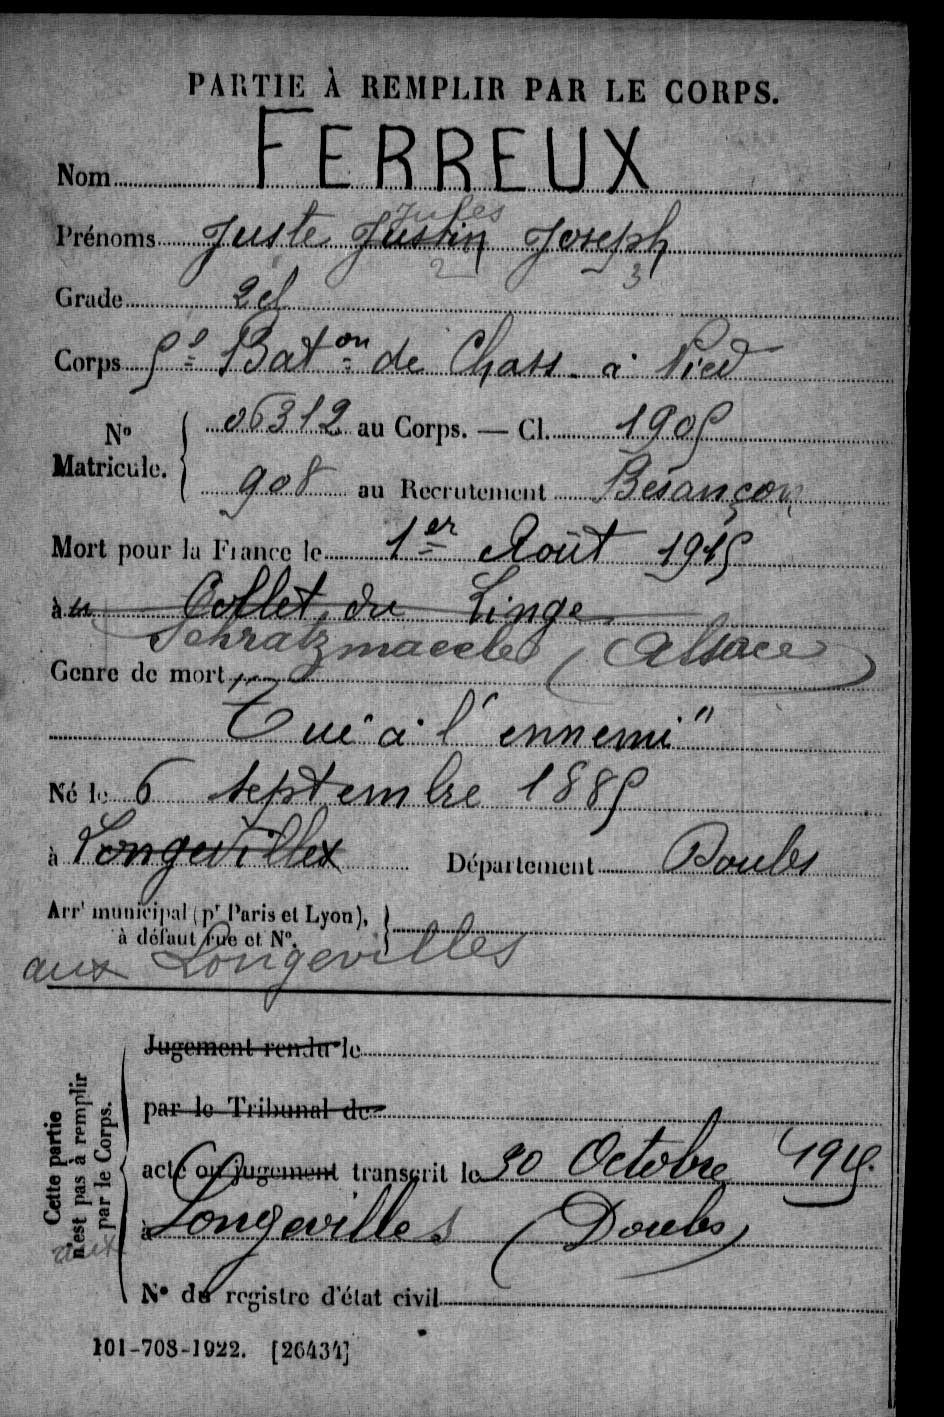 PARTIE À REMPLIR PAR LE CORPS.
Nom FERREUX
Jules
Prénoms Juste Justin Joseph
2 3
Grade 2 cl
Corps 5e Baton de Chass. à Pied
No Matricule. { 06312 au Corps. — Cl. 1905
908 au Recrutement Besançon
Mort pour la France le 1er Août 1915
à u Collet du Linge
Schratzmaecle (Alsace)
Genre de mort
"Tué à l'ennemi"
Né le 6 septembre 1885
à Longevilles Département Doubs
Arrt municipal (pr Paris et Lyon), à défaut rue et No. }
aux Longevilles
Cette partie n'est pas à remplir par le Corps.
Jugement rendu le
par le Tribunal de
acte ou jugement transcrit le 30 Octobre 1915.
aux
à Longevilles (Doubs)
No du registre d'état civil
101-708-1922. [26434]